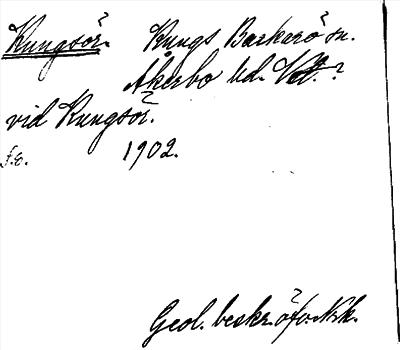 Kungsör. Kungs Barkarö sn.
Åkerbo hd. Vstl. ?
vid Kungsör.
f.ö. 1902.
Geol. beskr. öfv. Nrk.